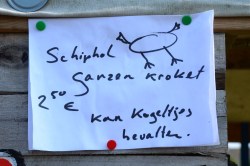 Schiphol
Ganzen kroket
2,50 €
kan kogeltjes
bevatten.